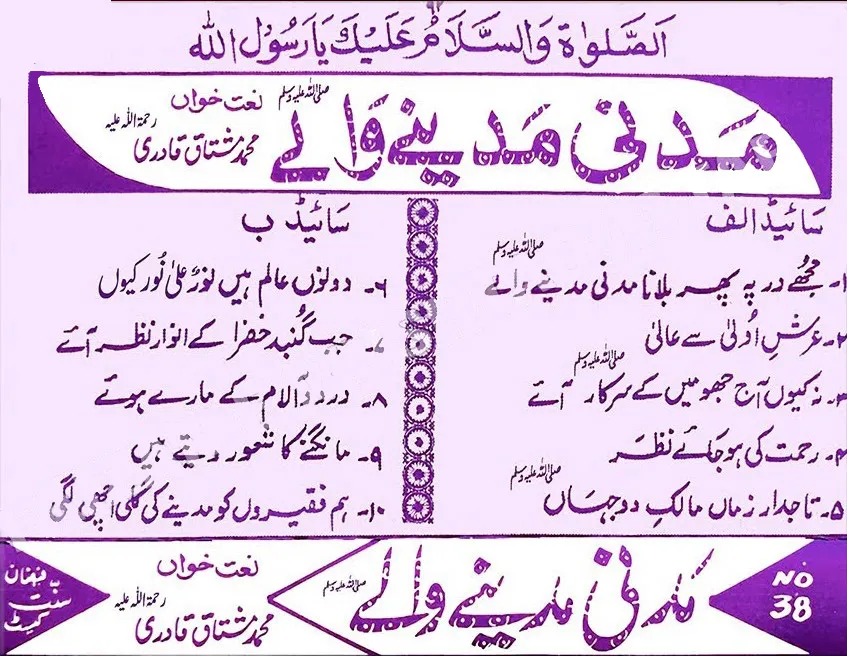 الصلوٰۃ والسلام علیک یا رسول اللہ
مدنی مدینے والے صلی اللہ علیہ وسلم
نعت خواں
محمد مشتاق قادری رحمۃ اللہ علیہ
سائیڈ الف
۱۔ مجھے در پہ پھر بلانا مدنی مدینے والے صلی اللہ علیہ وسلم
۲۔ عرشِ اُولیٰ سے عالیٰ
۳۔ نہ کیوں آج جھومیں کے سرکار صلی اللہ علیہ وسلم آئے
۴۔ رحمت کی ہو جائے نظر
۵۔ تاجدار زماں مالکِ دو جہاں صلی اللہ علیہ وسلم
سائیڈ ب
۶۔ دونوں عالم ہیں نورٌ علیٰ نُور کیوں
۷۔ جب گُنبد خضرا کے انوار نظر آئے
۸۔ درد و آلام کے مارے ہوئے
۹۔ مانگنے کا شعور دیتے ہیں
۱۰۔ ہم فقیروں کو مدینے کی گلی اچھی لگی
NO
38
مدنی مدینے والے صلی اللہ علیہ وسلم
نعت خواں
محمد مشتاق قادری رحمۃ اللہ علیہ
سنت